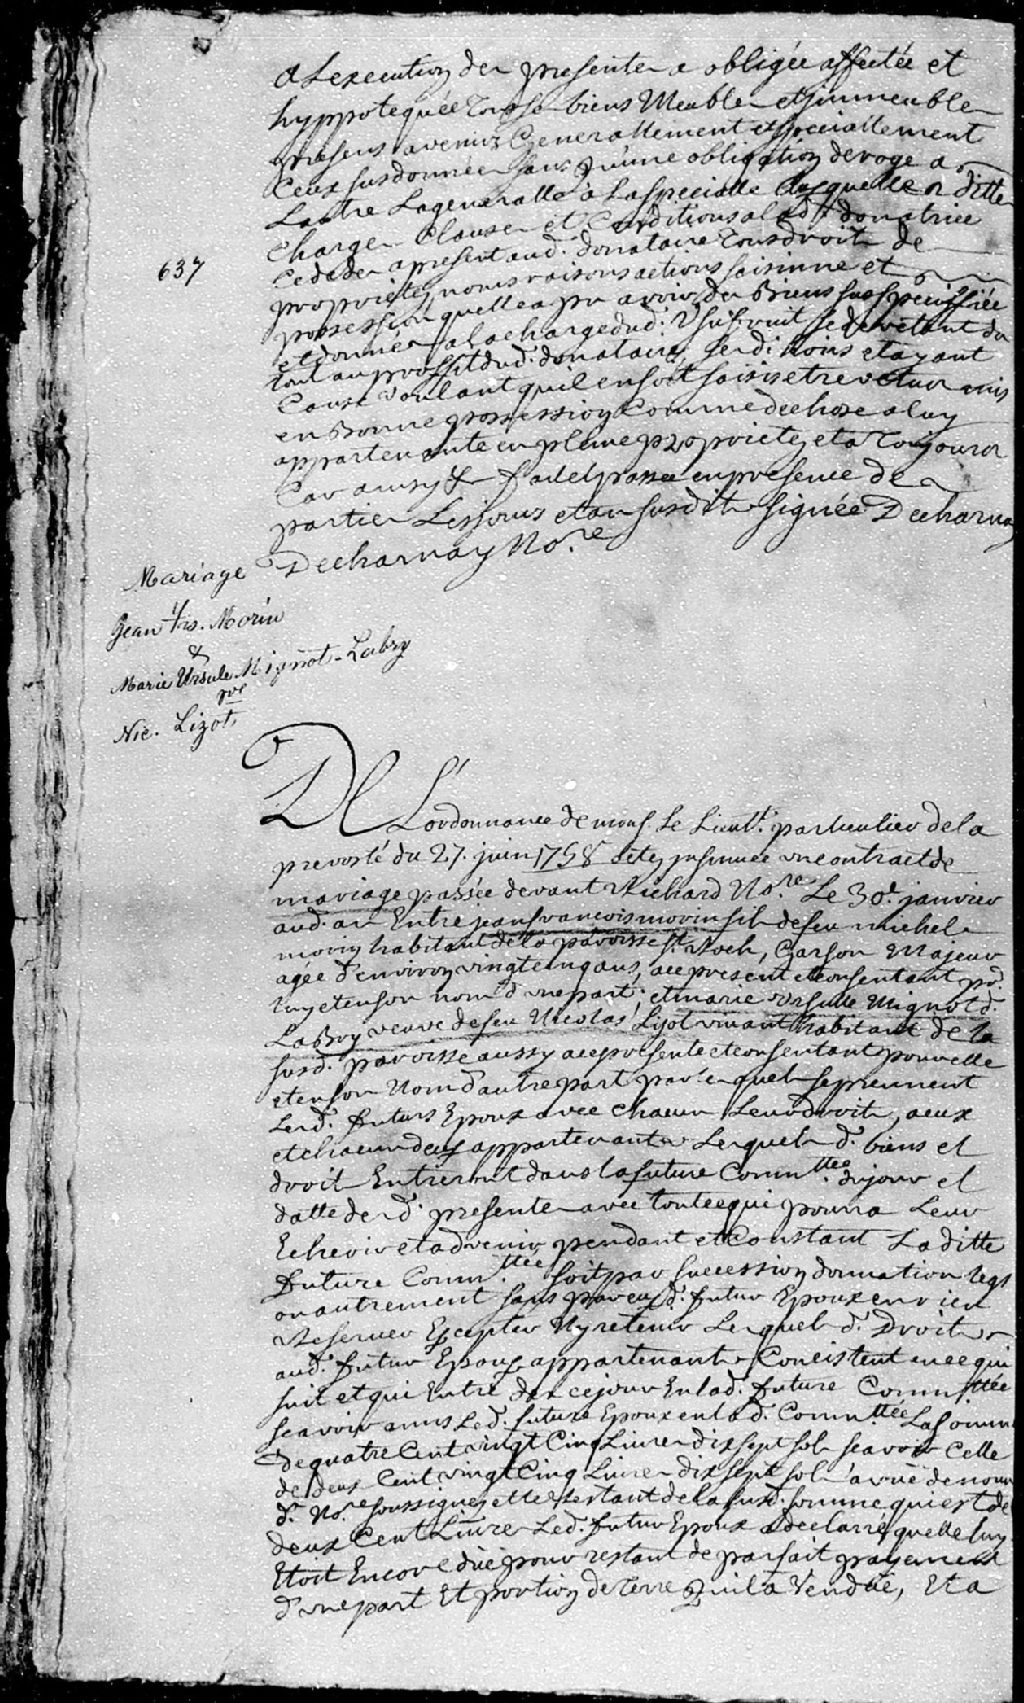 a Lexecution der presenter a obligée affectée et
hyppotequée Tous se biens Meuble et jmmeuble
presens avenir Generallement et speciallement
Ceux susdonnée sans qu'une obligation deroge a
Lautre Lageneralle a Laspecialle Lesquelle ditte
charge Clauser et Conditions lad. donatrice
Cede der apresent aud. donataire Tous droit de
proprietez noms raisons actions saisinne et
possession quelle a pu avoir der Biens sus specifiée
et donner a la charge dud. Usufruit se devetant du
tout au proffit dud. donataire, sesd. hoirs et ayant
Cause voulant quil en soit saisis et revetus mis
en Bonne possession Comme de chose a luy
appartenante en pleine proprietez et a Toujours
Car ainsy &c fait et passée en presence de
partier Les jours et an susdit signée Decharnay
Decharnay No.re
637
Mariage
Jean Frs. Morin
&
Marie Ursule Mignot-Labry
pve
Nic. Lizot.
De L'ordonnance de mons. Le Lieut.t particulier de la
prevosté du 27. juin 1758 a étez jnsinuée un contract de
mariage passée devant Richard No.re Le 30e. janvier
aud. an Entre jean francois morin fils de feu michel
morin habitant de la paroisse St. Roch, Garson Majeur
agée d'environ vingt cinq ans, ace present et consentant po.
luy et en son nom d'une part; et marie ursulle Mignot d.
LaBry veuve de feu Nicolas Lizot vivant habitant de la
susd. paroisse aussy ace presente et consentant pour elle
et en son Nom d'autre part par lequel se prennent
Lesd. futurs Epoux avec chacun Leur droits, a eux
et chacun deux appartenant Lesquels d. biens et
droit Entreront dans la future Comm.ttée du jour et
datte des d. presente avec tout ce qui pourra Leur
Echeoir et advenir pendant et Constant Laditte
future Comm.ttée soit par succession donnation legs
ou autrement sans par eux d. futur Epoux en rien
Reserver Excepter Ny retenir Lesquels d. Droit
aud. futur Epoux appartenant Concistent en ce qui
suit et qui Entre der ce jour En lad. future Comm.ttée
scavoir a mis Led. future Epoux en lad. Comm.ttée La somme
de quatre Cent vingt Cinq Livre dix sept sols scavoir Celle
de deux Cent vingt Cinq Livre dix sept sols a vuë de nous
d. No.re soussignez et le restant de la susd. somme qui est de
deux Cent Livre Led. futur Epoux a declarré quelle luy
Etoit Encore düe pour restant de parfait payement
d'une part Et portion de Terre quil a Vendüe, Et a